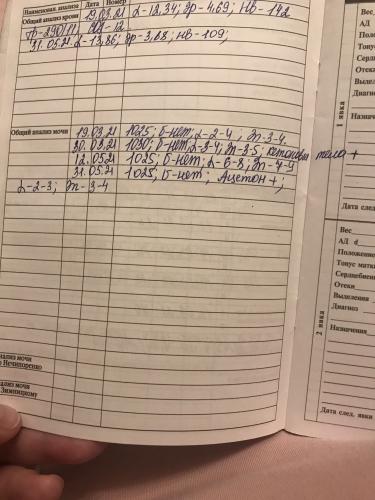 Наименован. анализа Дата Номер
Общий анализ крови 19.03.21 L-12,34; эр-4.69; Нв-142
31.05.21. L-13,86; эр-3,88; нв-109;
Общий анализ мочи 19.03.21 1025; б-нет; L-2-4; эп-3-4.
1030; б-нет; L-3-4; эп-3-5; кетоновые тела +
12.05.21 1025; б-нет; L-6-8; эп-4-9
31.05.21 1025; б-нет; Ацетон +;
L-2-3; эп-3-4
анализ мочи
Нечипоренко
анализ мочи
Зимницкому
Вес
АД
Отеки
Выделения
Диагноз
Назначения
1 явка
Дата след.
Вес
АД d
Положение
Тонус матки
Сердцебиение
Отеки
Выделения
Диагноз
Назначения
2 явка
Дата след. явки